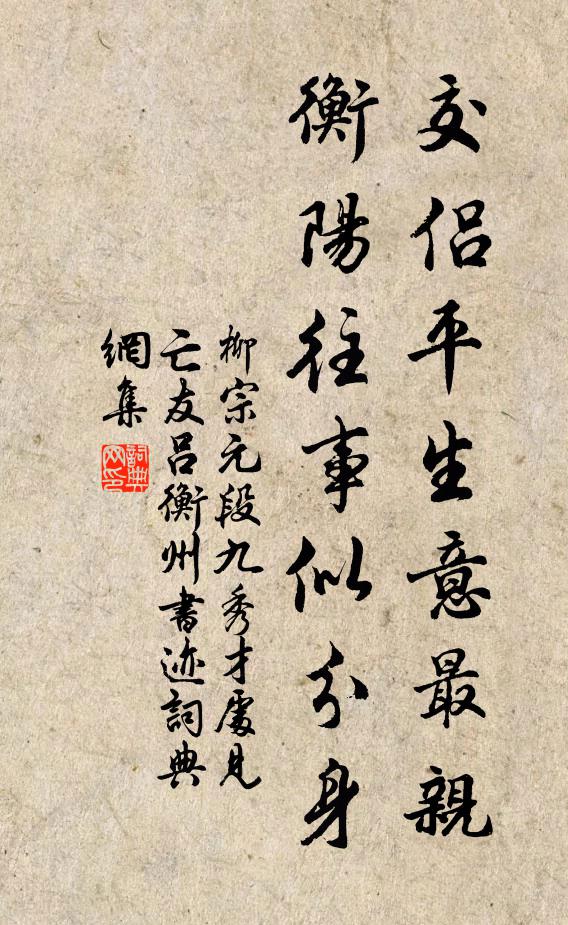 交侣平生意最親
衡陽往事似分身
柳宗元段九秀才處見
亡友吕衡州書迹詞典
網集
詞典
网印